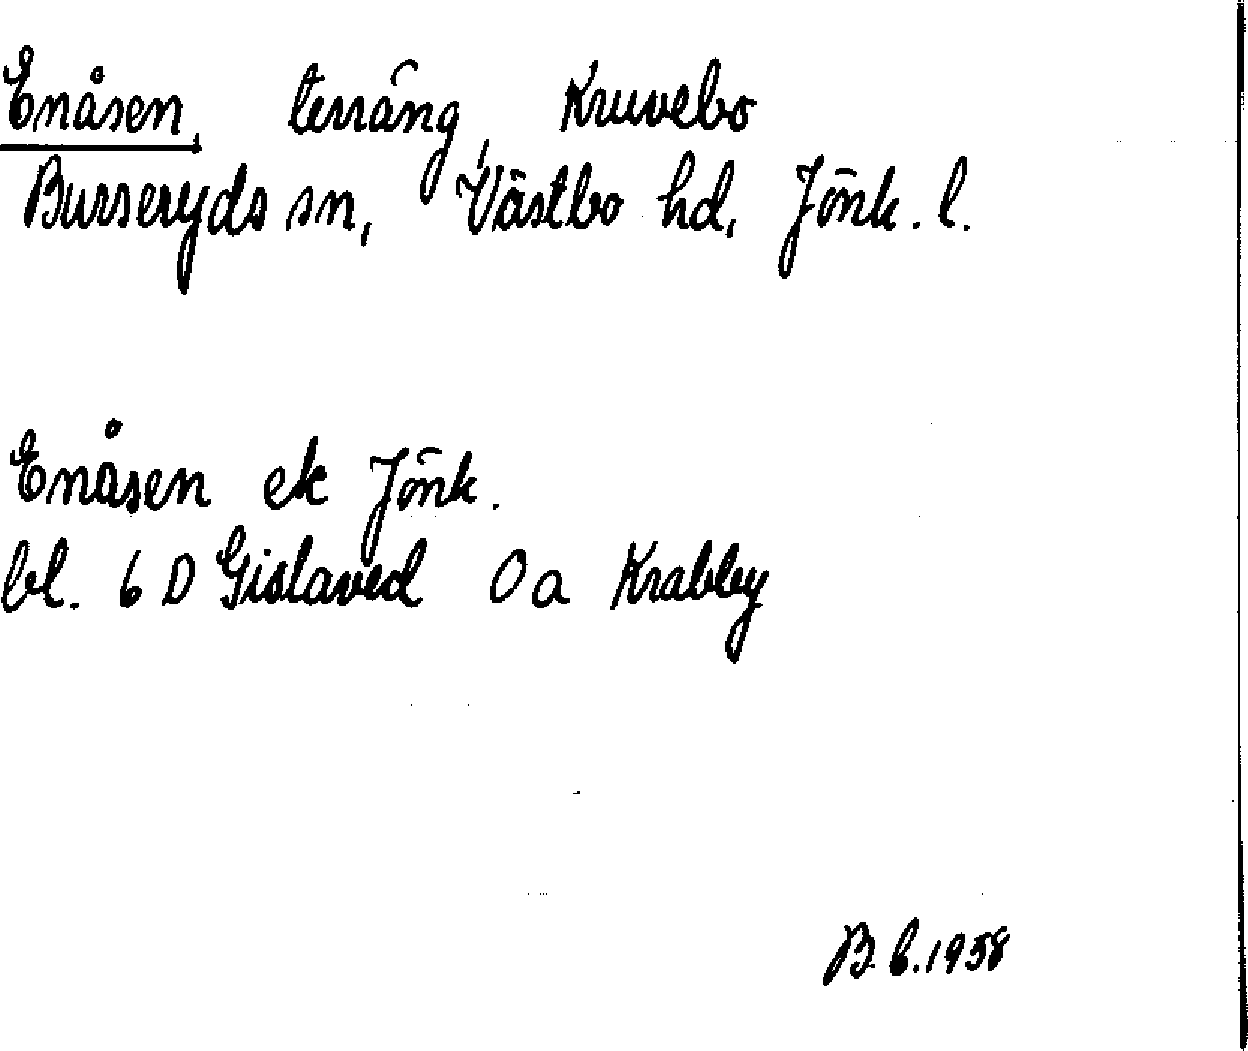 Enåsen, terräng, Kruvebo
Burseryds sn, Västbo hd, Jönk. l.
Enåsen ek Jönk.
bl. 6 D Gislaved 0a Krabby
B. b. 1958